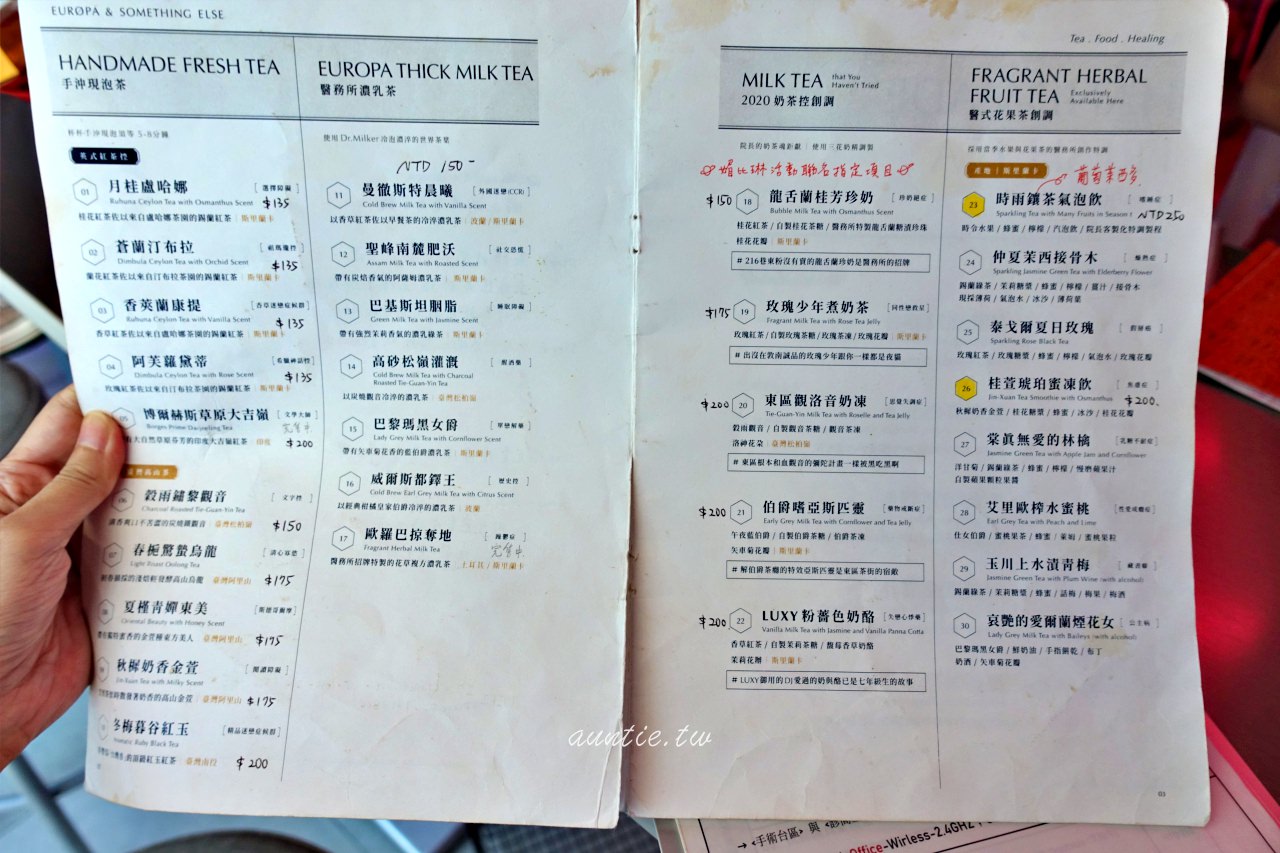 EUROPA & SOMETHING ELSE
HANDMADE FRESH TEA
手沖現泡茶
杯杯手沖現泡須等 5-8分鐘
英式紅茶控
01 月桂盧哈娜 [ 選擇障礙 ]
Ruhuna Ceylon Tea with Osmanthus Scent $135
桂花紅茶佐以來自盧哈娜茶園的錫蘭紅茶 | 斯里蘭卡
02 蒼蘭汀布拉
Dimbula Ceylon Tea with Orchid Scent $135
蘭花紅茶佐以來自汀布拉茶園的錫蘭紅茶 | 斯里蘭卡
03 香莢蘭康提 [ 香草迷戀症候群 ]
Ruhuna Ceylon Tea with Vanilla Scent $135
香草紅茶佐以來自盧哈娜茶園的錫蘭紅茶 | 斯里蘭卡
04 阿芙蘿黛蒂 [ 希臘神話控 ]
Dimbula Ceylon Tea with Rose Scent $135
玫瑰紅茶佐以來自汀布拉茶園的錫蘭紅茶 | 斯里蘭卡
05 博爾赫斯草原大吉嶺 [ 文學大師 ]
Borges Prime Darjeeling Tea 完售中
有大自然草原芬芳的印度大吉嶺紅茶 | 印度 $200
臺灣高山茶
06 穀雨鏽黎觀音 [ 文字控 ]
Charcoal Roasted Tie-Guan-Yin Tea
滿香爽口不苦澀的炭燒鐵觀音 | 臺灣松柏嶺 $150
07 春梔驚蟄烏龍 [ 清心寡慾 ]
Light Roast Oolong Tea
臺灣阿里山 $175
08 夏槿青嬋東美 [ 斯德哥爾摩 ]
Oriental Beauty with Honey Scent
帶有獨特蜜香的金萱種東方美人 | 臺灣阿里山 $175
秋樨奶香金萱 [ 閱讀障礙 ]
Jin-Xuan Tea with Milky Scent
散發著奶香的高山金萱 | 臺灣阿里山 $175
冬梅暮谷紅玉 [ 精品迷戀症候群 ]
Aromatic Ruby Black Tea
的頂級紅玉紅茶 | 臺灣南投 $200
EUROPA THICK MILK TEA
醫務所濃乳茶
使用 Dr.Milker 冷泡濃淬的世界茶葉
NTD 150-
11 曼徹斯特晨曦 [ 外國迷戀(CCR) ]
Cold Brew Milk Tea with Vanilla Scent
以香草紅茶佐以早餐茶的冷淬濃乳茶 | 波蘭 / 斯里蘭卡
12 聖峰南麓肥沃 [ 社交恐慌 ]
Assam Milk Tea with Roasted Scent
帶有炭焙香氣的阿薩姆濃乳茶 | 斯里蘭卡
13 巴基斯坦胭脂 [ 睡眠障礙 ]
Green Milk Tea with Jasmine Scent
帶有強烈茉莉香氣的濃乳綠茶 | 斯里蘭卡
14 高砂松嶺灌溉 [ 醒酒藥 ]
Cold Brew Milk Tea with Charcoal
Roasted Tie-Guan-Yin Tea
以炭燒觀音冷淬的濃乳茶 | 臺灣松柏嶺
15 巴黎瑪黑女爵 [ 單戀解藥 ]
Lady Grey Milk Tea with Cornflower Scent
帶有矢車菊花香的藍伯爵濃乳茶 | 斯里蘭卡
16 威爾斯都鐸王 [ 歷史控 ]
Cold Brew Earl Grey Milk Tea with Citrus Scent
以經典柑橘皇家伯爵冷淬的濃乳茶 | 波蘭
17 歐羅巴掠奪地
Fragrant Herbal Milk Tea 完售中
醫務所招牌特製的花草複方濃乳茶 | 土耳其 / 斯里蘭卡
Tea . Food . Healing
MILK TEA that You
Haven't Tried
2020 奶茶控創調
院長的奶茶魂鉅獻 | 使用三花奶精調製
媚比琳活動聯名指定項目
$150 18 龍舌蘭桂芳珍奶 [ 珍奶絕症 ]
Bubble Milk Tea with Osmanthus Scent
桂花紅茶 / 自製桂花茶糖 / 醫務所特製龍舌蘭糖漬珍珠
桂花花瓣 | 斯里蘭卡
# 216巷東粉沒有賣的龍舌蘭珍奶是醫務所的招牌
$175 19 玫瑰少年煮奶茶 [ 同性戀救星 ]
Fragrant Milk Tea with Rose Tea Jelly
玫瑰紅茶 / 自製玫瑰茶糖 / 玫瑰茶凍 / 玫瑰花瓣 | 斯里蘭卡
# 出沒在敦南誠品的玫瑰少年跟你一樣都是夜貓
$200 20 東區觀洛音奶凍 [ 思覺失調症 ]
Tie-Guan-Yin Milk Tea with Roselle and Tea Jelly
穀雨觀音 / 自製觀音茶糖 / 觀音茶凍
洛神花朵 | 臺灣松柏嶺
# 東區根本和血觀音的彌陀計畫一樣被黑吃黑啊
$200 21 伯爵嗜亞斯匹靈 [ 藥物戒斷症 ]
Early Grey Milk Tea with Cornflower and Tea Jelly
午夜藍伯爵 / 自製伯爵茶糖 / 伯爵茶凍
矢車菊花瓣 | 斯里蘭卡
# 解伯爵茶癮的特效亞斯匹靈是東區茶街的宿敵
$200 22 LUXY粉薔色奶酪 [ 失戀心悸藥 ]
Vanilla Milk Tea with Jasmine and Vanilla Panna Cotta
香草紅茶 / 自製茉莉茶糖 / 馥莓香草奶酪
茉莉花瓣 | 斯里蘭卡
# LUXY御用的DJ愛過的奶與酪已是七年級生的故事
FRAGRANT HERBAL
FRUIT TEA Exclusively
Available Here
醫式花果茶創調
採用當季水果與花果茶的醫務所創作特調
產地 | 斯里蘭卡
葡萄萊西多
23 時雨鑲茶氣泡飲 [ 嗜睡症 ]
Sparkling Tea with Many Fruits in Season NTD250
時令水果 / 蜂蜜 / 檸檬 / 汽泡飲 / 院長客製化特調製程
24 仲夏茉西接骨木 [ 燥熱症 ]
Sparkling Jasmine Green Tea with Elderberry Flower
錫蘭綠茶 / 茉莉糖漿 / 蜂蜜 / 檸檬 / 薑汁 / 接骨木
現採薄荷 / 氣泡水 / 冰沙 / 薄荷葉
25 泰戈爾夏日玫瑰
Sparkling Rose Black Tea
玫瑰紅茶 / 玫瑰糖漿 / 蜂蜜 / 檸檬 / 氣泡水 / 玫瑰花瓣
26 桂萱琥珀蜜凍飲 [ 焦慮症 ]
Jin-Xuan Tea Smoothie with Osmanthus $200.
秋樨奶香金萱 / 桂花糖漿 / 蜂蜜 / 冰沙 / 桂花花瓣
27 棠真無愛的林檎 [ 乳糖不耐症 ]
Jasmine Green Tea with Apple Jam and Cornflower
洋甘菊 / 錫蘭綠茶 / 蜂蜜 / 檸檬 / 慢磨蘋果汁
自製蘋果顆粒果醬
28 艾里歐榨水蜜桃 [ 性愛成癮症 ]
Earl Grey Tea with Peach and Lime
仕女伯爵 / 蜜桃果茶 / 蜂蜜 / 萊姆 / 蜜桃果粒
29 玉川上水漬青梅 [ 藏書癖 ]
Jasmine Green Tea with Plum Wine (with alcohol)
錫蘭綠茶 / 茉莉糖漿 / 蜂蜜 / 話梅 / 梅果 / 梅酒
30 哀艷的愛爾蘭煙花女 [ 公主病 ]
Lady Grey Milk Tea with Baileys (with alcohol)
巴黎瑪黑女爵 / 鮮奶油 / 手指餅乾 / 布丁
奶酒 / 矢車菊花瓣
03
auntie.tw
<手術台區> 與
Office-Wirless-2.4GHz